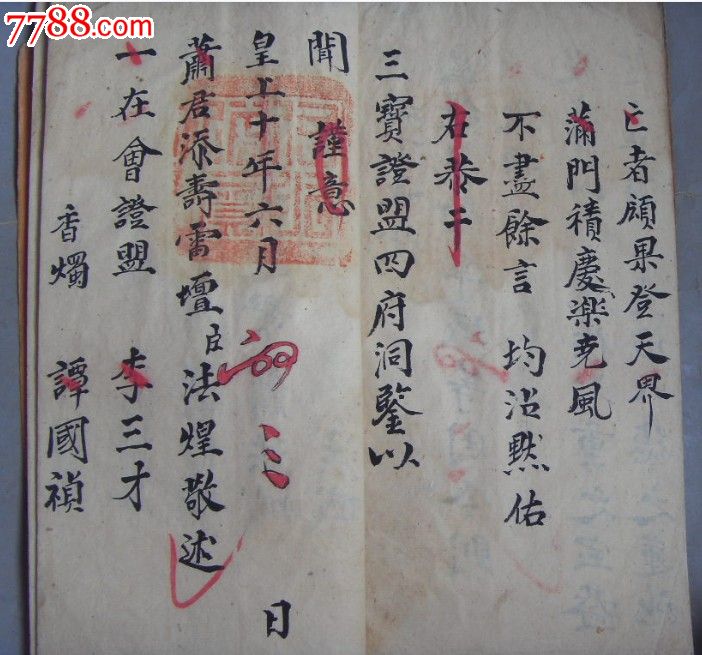 7788.com
亡者願果登天界
滿門積慶樂尭風
不盡餘言 均沾黙佑
右恭干
三寳證盟四府洞鑒以
聞 謹意
皇上十年六月 初三 日
蕭君添壽雷壇臣法煌敬述
一在會證盟 李三才
香燭 譚國禎